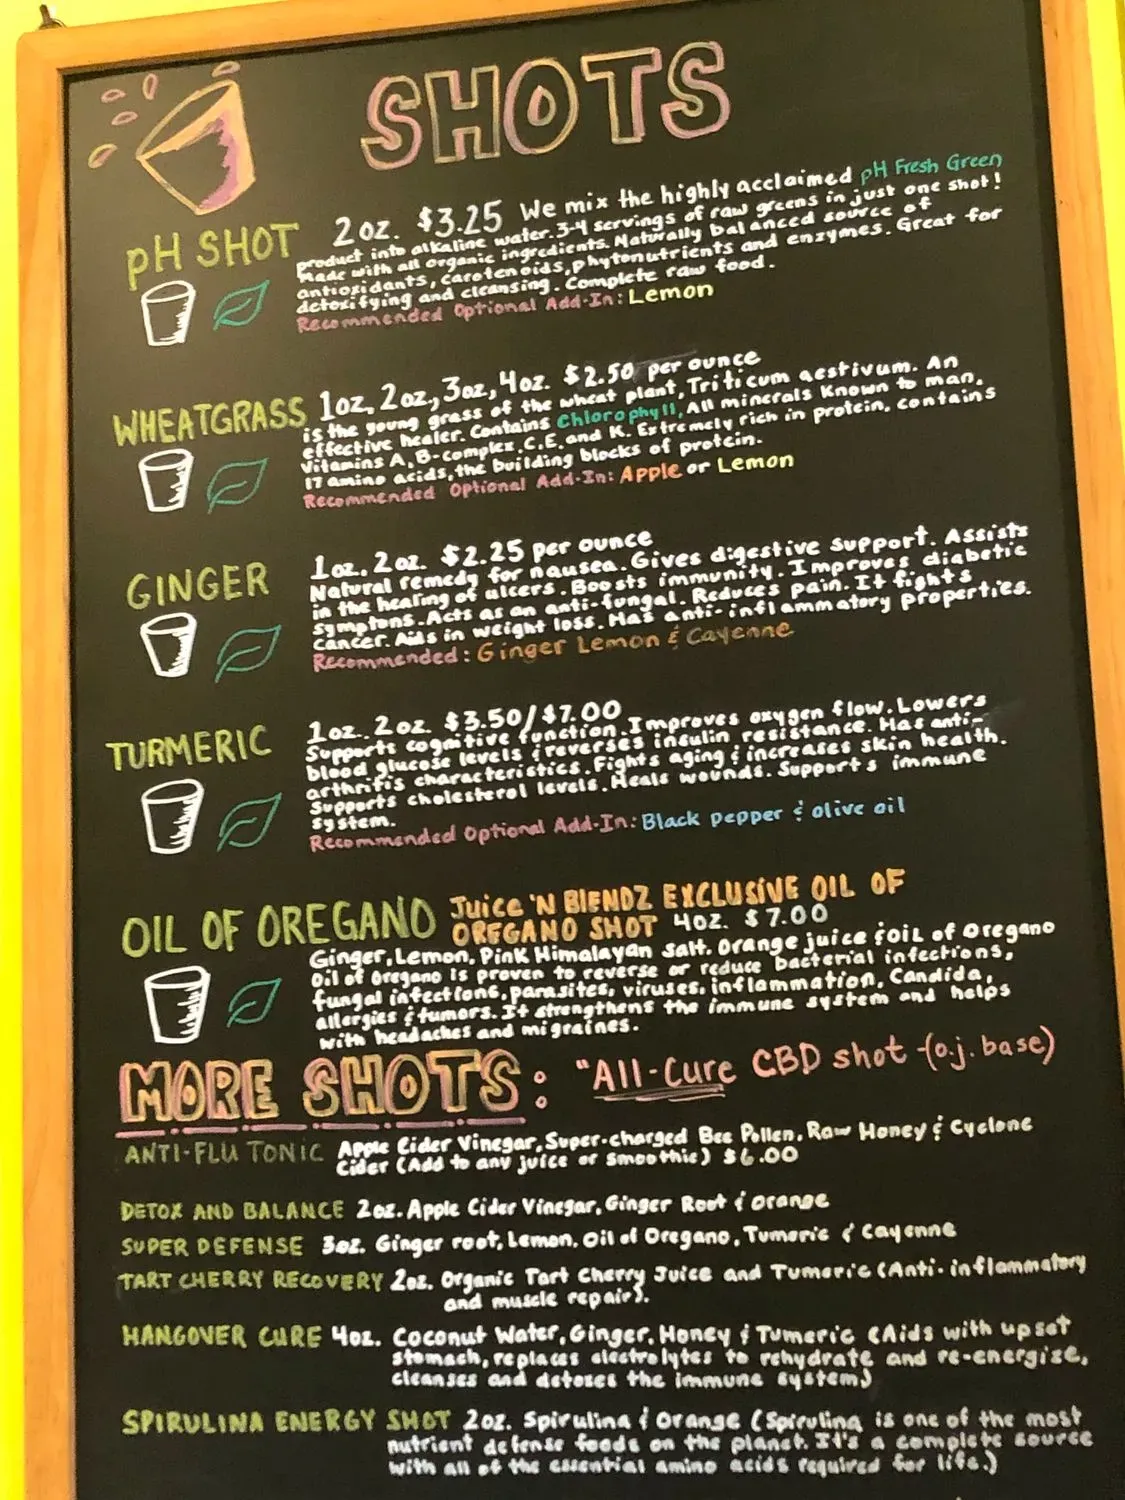 SHOTS
pH SHOT 2 oz. $3.25 We mix the highly acclaimed pH Fresh Green
product into alkaline water. 3-4 servings of raw greens in just one shot!
Made with all organic ingredients. Naturally balanced source of
antioxidants, carotenoids, phytonutrients and enzymes. Great for
detoxifying and cleansing. Complete raw food.
Recommended Optional Add-In: Lemon
WHEATGRASS 1oz, 2oz, 3oz, 4oz. $2.50 per ounce
is the young grass of the wheat plant, Triticum aestivum. An
effective healer. Contains Chlorophyll, All minerals Known to man,
Vitamins A, B-complex, C, E, and K. Extremely rich in protein, contains
17 amino acids, the building blocks of protein.
Recommended Optional Add-In: Apple or Lemon
GINGER 1oz. 2oz. $2.25 per ounce
Natural remedy for nausea. Gives digestive support. Assists
in the healing of ulcers. Boosts immunity. Improves diabetic
symptons. Acts as an anti-fungal. Reduces pain. It fights
cancer. Aids in weight loss. Has anti-inflammatory properties.
Recommended: Ginger Lemon & Cayenne
TURMERIC 1oz. 2oz. $3.50/$7.00
Supports cognitive function. Improves oxygen flow. Lowers
blood glucose levels & reverses insulin resistance. Has anti-
arthritis characteristics. Fights aging & increases skin health.
Supports cholesterol levels. Heals wounds. Supports immune
system.
Recommended Optional Add-In: Black pepper & olive oil
OIL OF OREGANO JUICE 'N BLENDZ EXCLUSIVE OIL OF
OREGANO SHOT 4oz. $7.00
Ginger, Lemon, Pink Himalayan salt, Orange juice & Oil of Oregano
Oil of Oregano is proven to reverse or reduce bacterial infections,
fungal infections, parasites, viruses, inflammation, Candida,
allergies & tumors. It strengthens the immune system and helps
with headaches and migraines.
MORE SHOTS: "All-Cure CBD shot -(o.j. base)
ANTI-FLU TONIC Apple Cider Vinegar, Super-charged Bee Pollen, Raw Honey & Cyclone
Cider (Add to any juice or smoothie) $6.00
DETOX AND BALANCE 2oz. Apple Cider Vinegar, Ginger Root & Orange
SUPER DEFENSE 3oz. Ginger root, Lemon, Oil of Oregano, Tumeric & Cayenne
TART CHERRY RECOVERY 2oz. Organic Tart Cherry Juice and Tumeric (Anti-inflammatory
and muscle repair).
HANGOVER CURE 4oz. Coconut Water, Ginger, Honey & Tumeric (Aids with upset
stomach, replaces electrolytes to rehydrate and re-energize,
cleanses and detoxes the immune system)
SPIRULINA ENERGY SHOT 2oz. Spirulina & Orange (Spirulina is one of the most
nutrient defense foods on the planet. It's a complete source
with all of the essential amino acids required for life.)